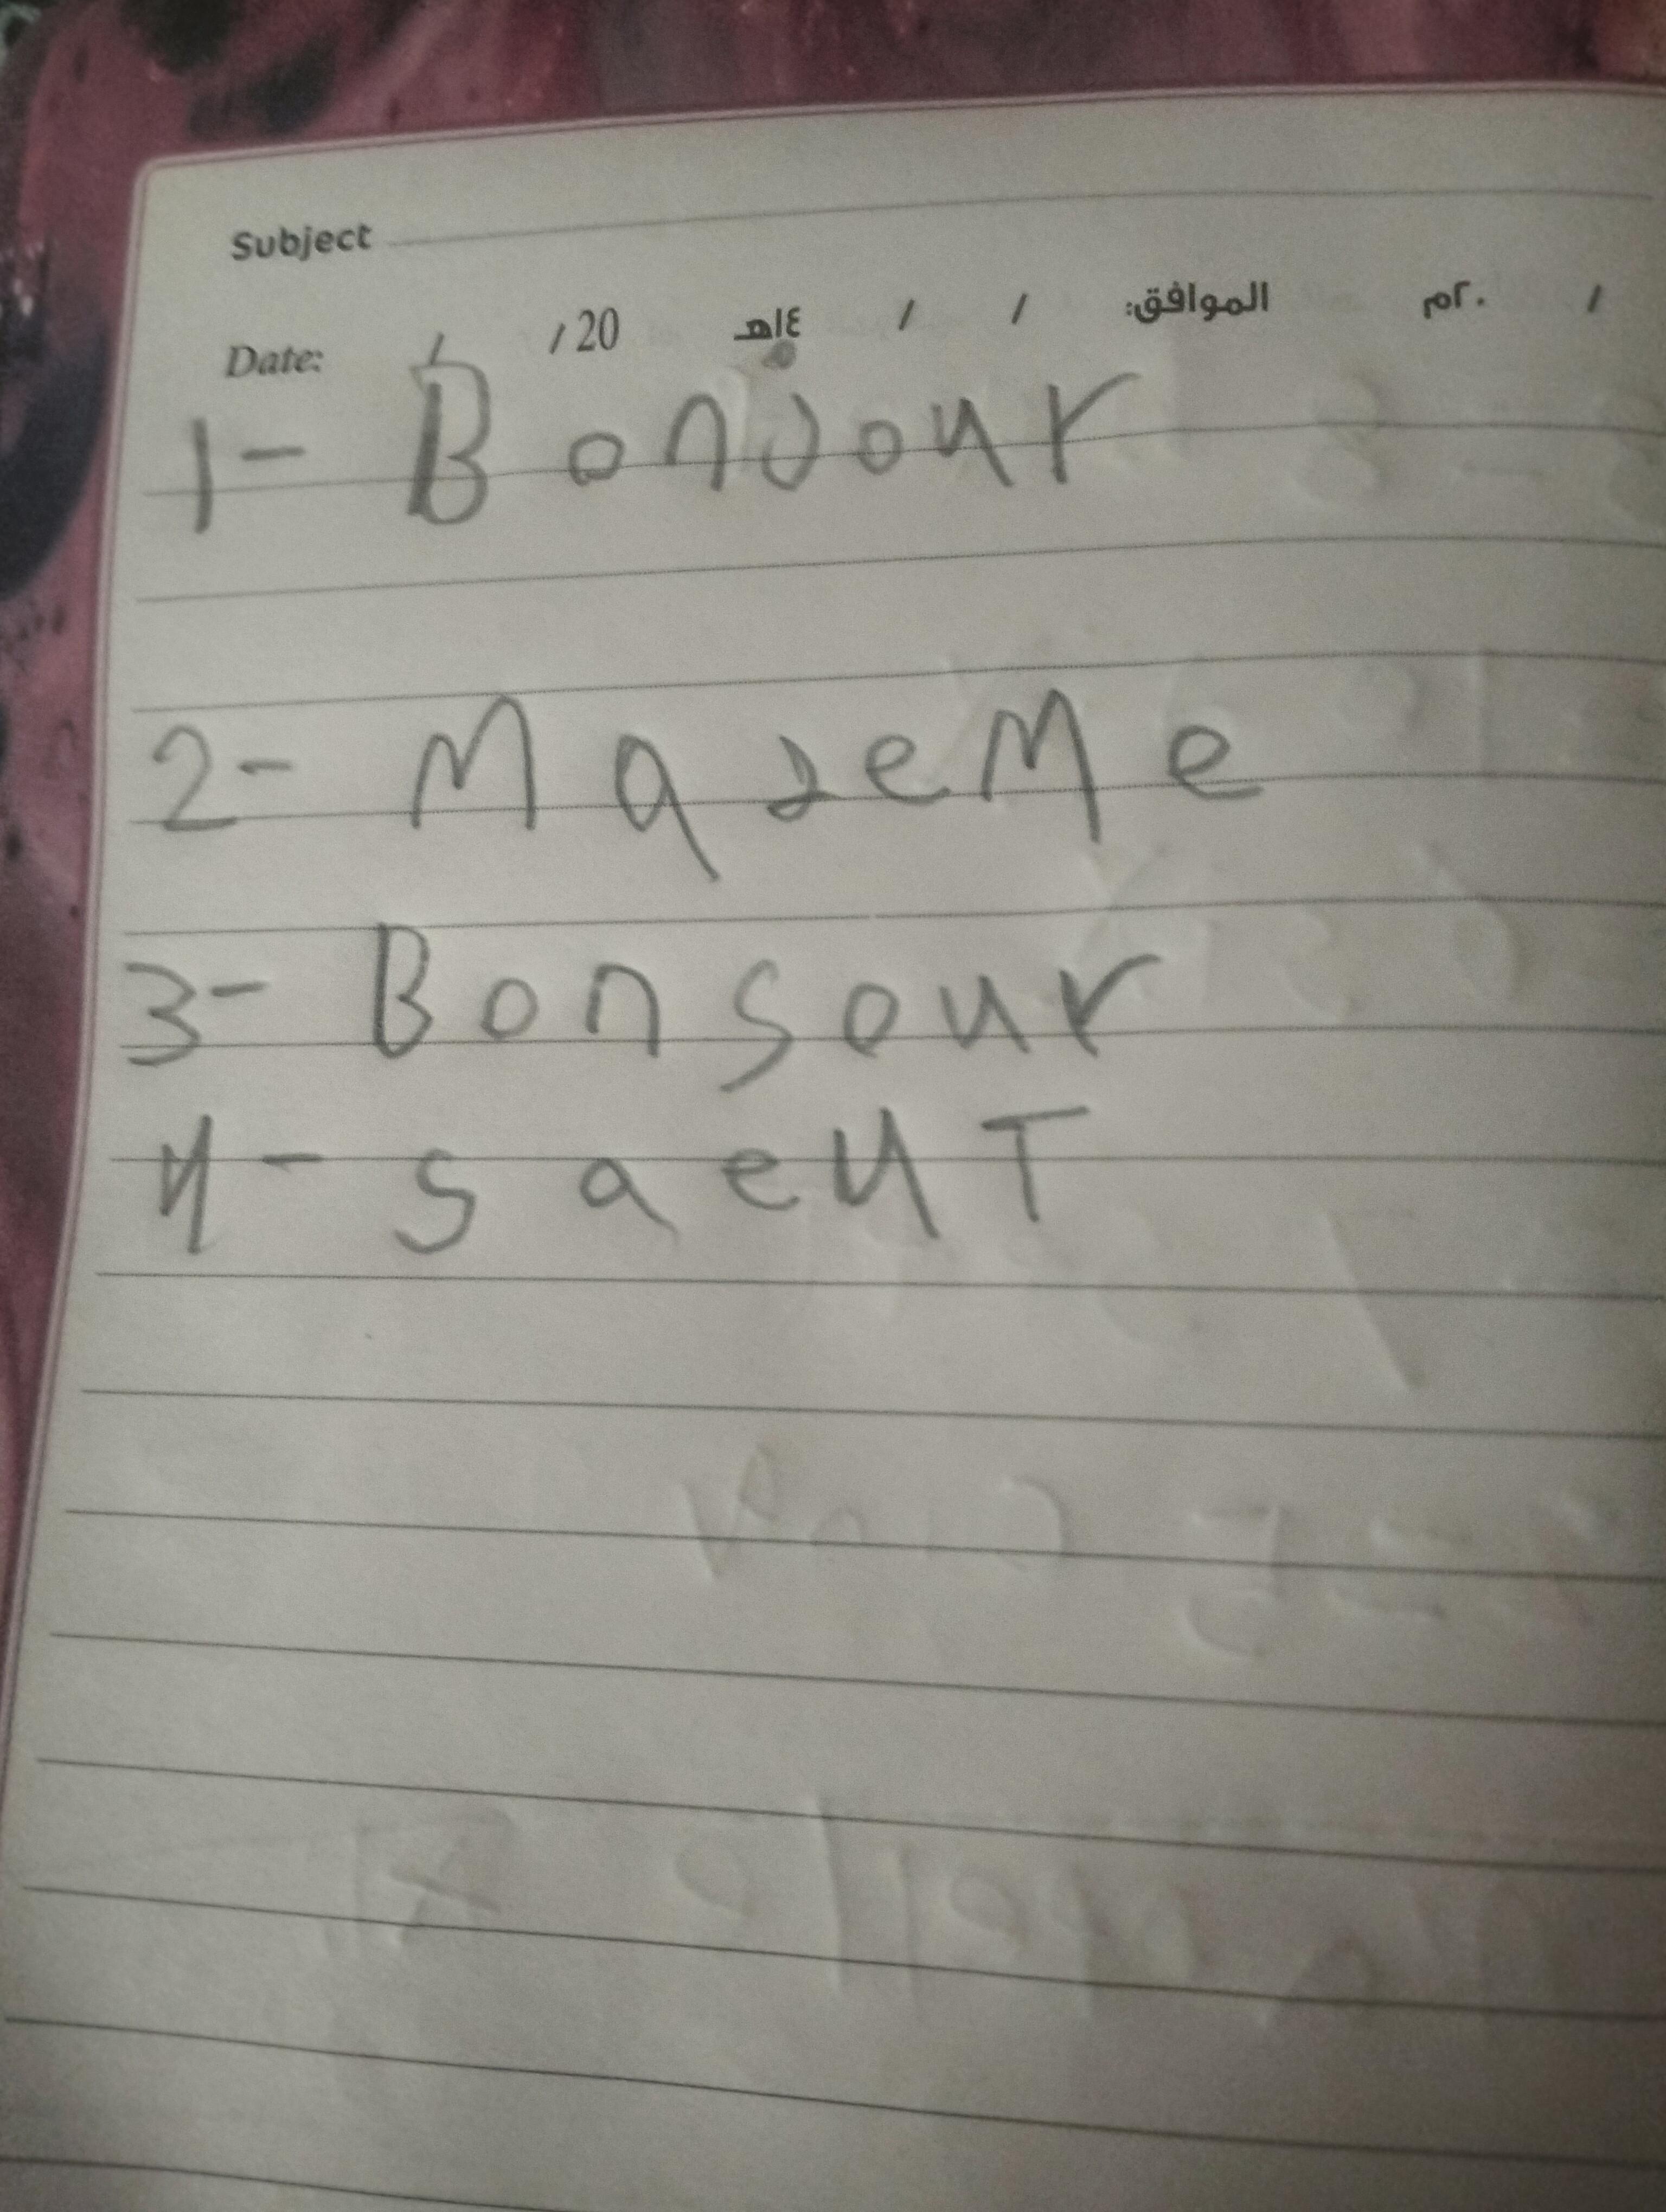 Subject
Date: / / 20 الموافق: / / ١٤هـ / ٢٠م
1- Bonjour
2- MaseMe
3- Bonsour
4- saeuT